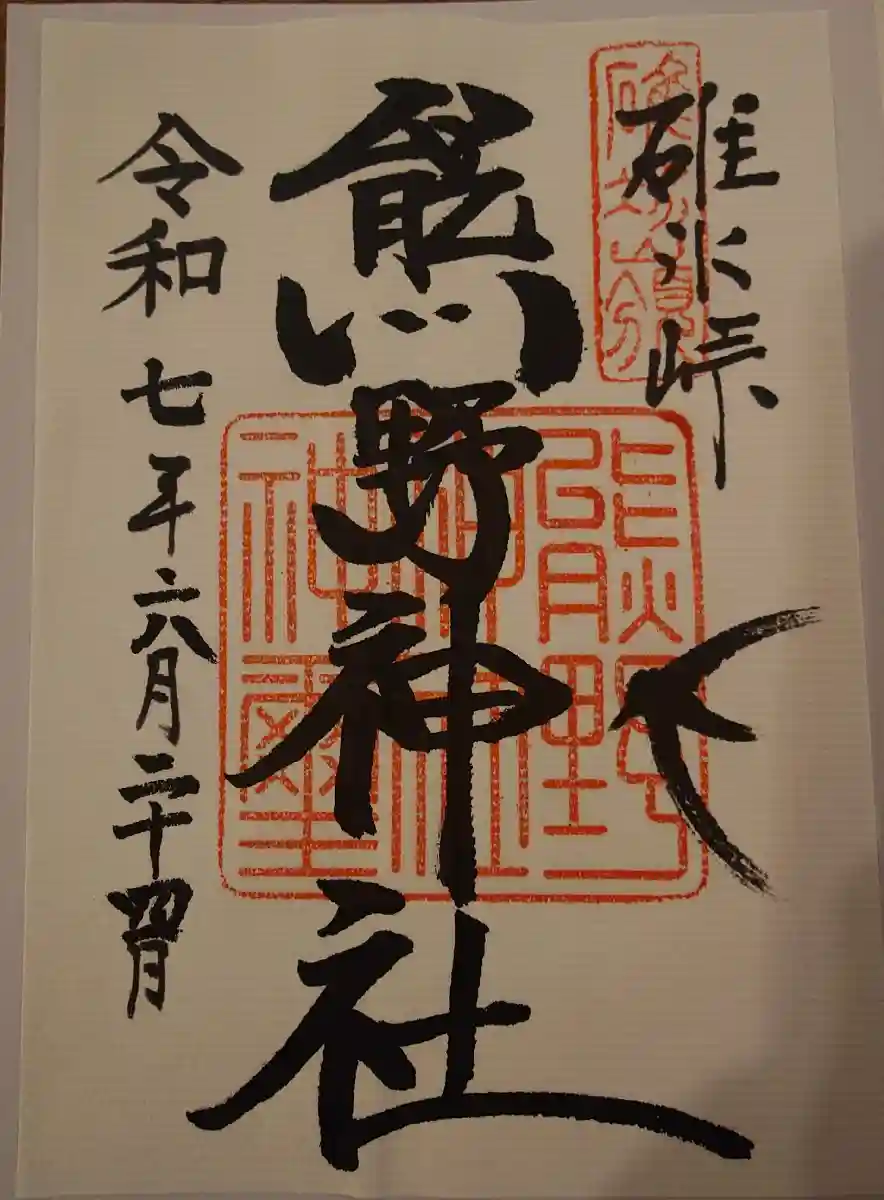 碓氷峠
熊野神社
令和七年六月二十四日
熊野
神社
神璽